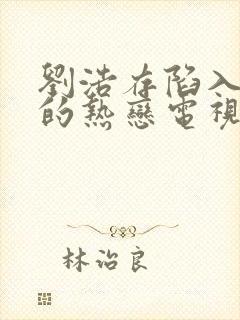 劉浩存陷入
的熱戀電視
林治良